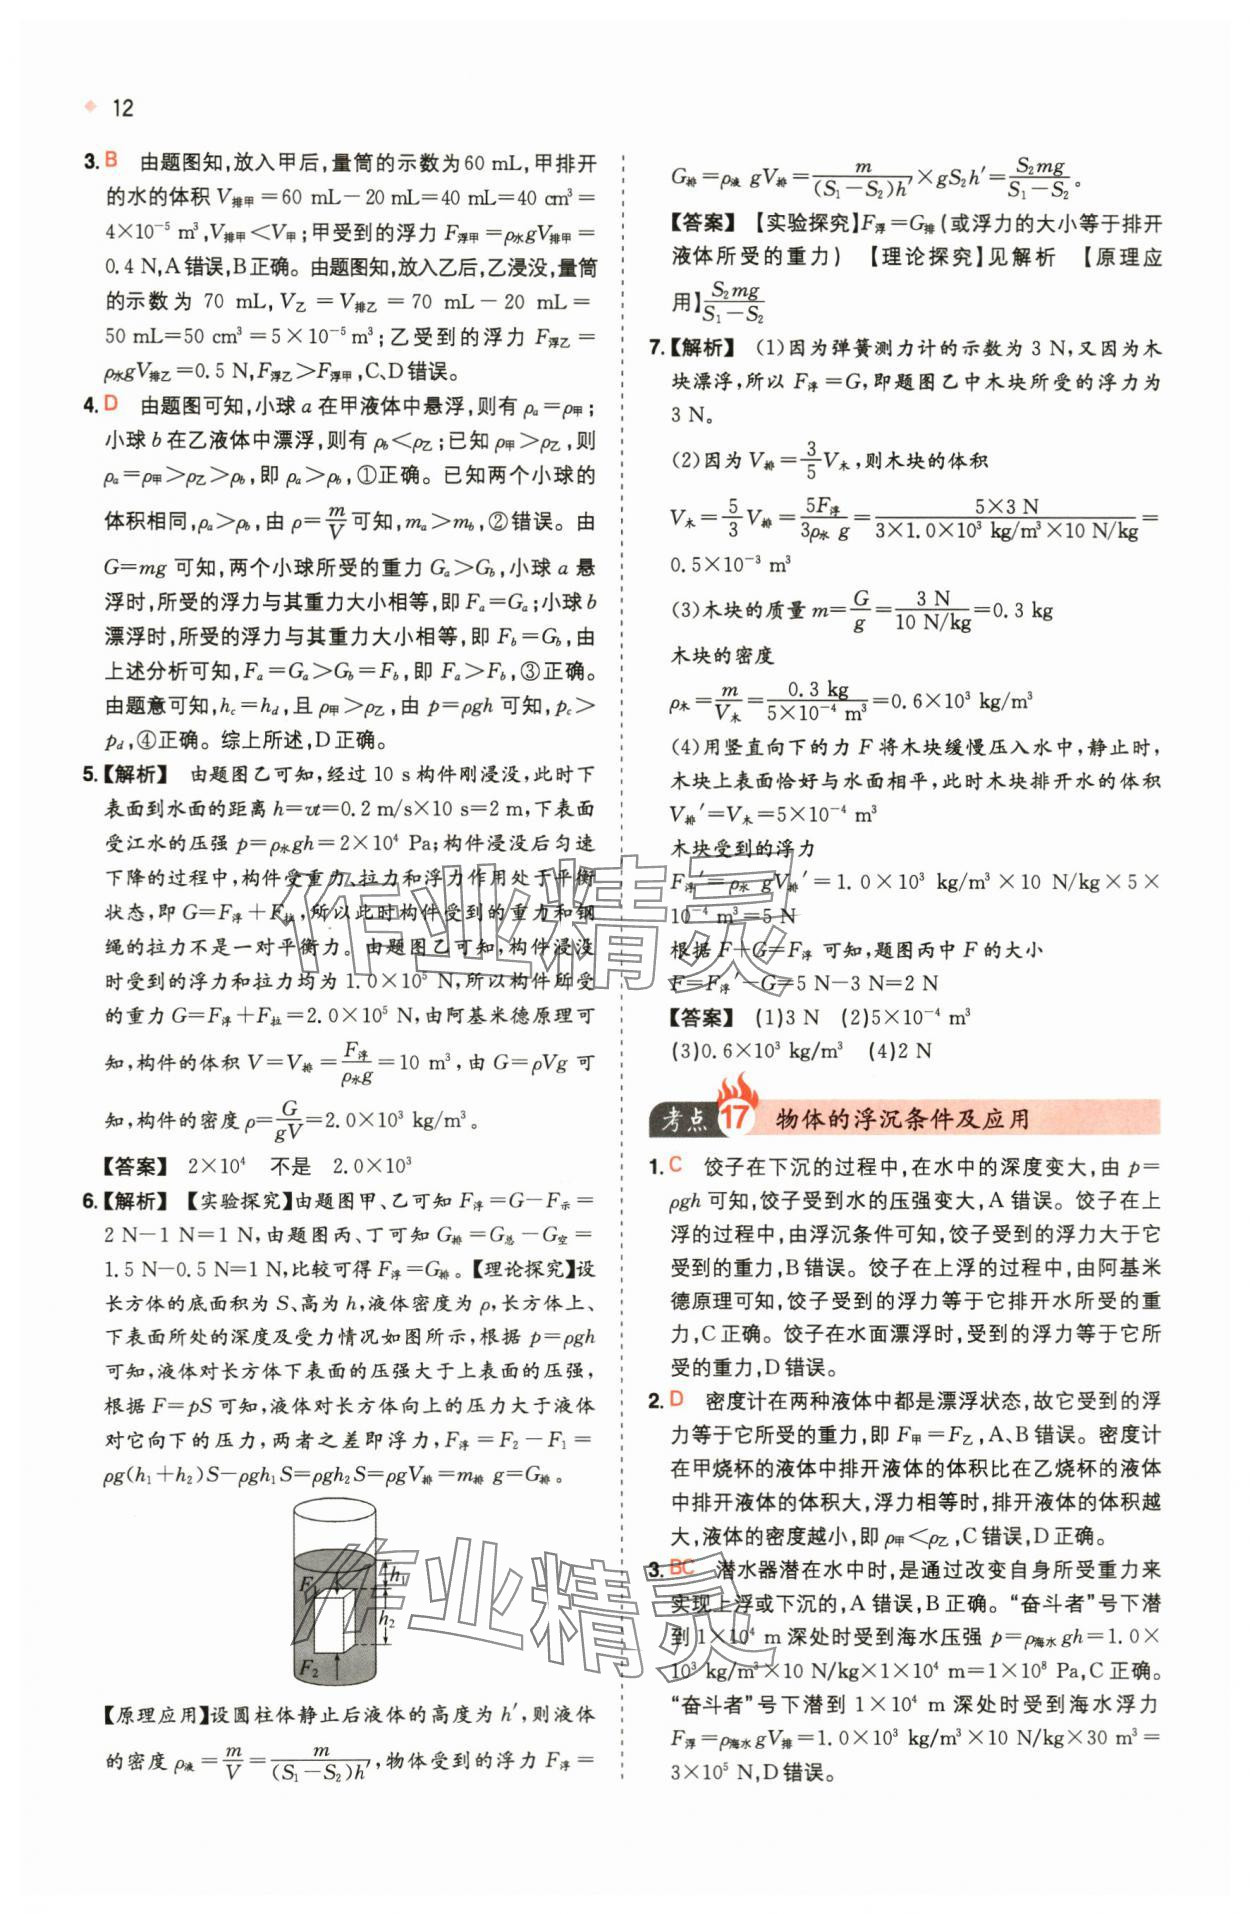 12
3. B 由题图知,放入甲后,量筒的示数为60 mL,甲排开
的水的体积 V排甲=60 mL-20 mL=40 mL=40 cm³=
4×10⁻⁵ m³,V排甲<V甲;甲受到的浮力 F浮甲=ρ水gV排甲=
0.4 N,A错误,B正确。由题图知,放入乙后,乙浸没,量筒
的示数为 70 mL,V乙=V排乙=70 mL-20 mL=
50 mL=50 cm³=5×10⁻⁵ m³;乙受到的浮力 F浮乙=
ρ水gV排乙=0.5 N,F浮乙>F浮甲,C、D错误。
4. D 由题图可知,小球 a 在甲液体中悬浮,则有 ρa=ρ甲;
小球 b 在乙液体中漂浮,则有 ρb<ρ乙;已知 ρ甲>ρ乙,则
ρa=ρ甲>ρ乙>ρb,即 ρa>ρb,①正确。已知两个小球的
体积相同,ρa>ρb,由 ρ=m/V可知,ma>mb,②错误。由
G=mg 可知,两个小球所受的重力 Ga>Gb,小球 a 悬
浮时,所受的浮力与其重力大小相等,即 Fa=Ga;小球 b
漂浮时,所受的浮力与其重力大小相等,即 Fb=Gb,由
上述分析可知,Fa=Ga>Gb=Fb,即 Fa>Fb,③正确。
由题意可知,hc=hd,且 ρ甲>ρ乙,由 p=ρgh 可知,pc>
pd,④正确。综上所述,D正确。
5.【解析】 由题图乙可知,经过 10 s 构件刚浸没,此时下
表面到水面的距离 h=vt=0.2 m/s×10 s=2 m,下表面
受江水的压强 p=ρ水gh=2×10⁴ Pa;构件浸没后匀速
下降的过程中,构件受重力、拉力和浮力作用处于平衡
状态,即 G=F浮+F拉,所以此时构件受到的重力和钢
绳的拉力不是一对平衡力。由题图乙可知,构件浸没
时受到的浮力和拉力均为 1.0×10⁵ N,所以构件所受
的重力 G=F浮+F拉=2.0×10⁵ N,由阿基米德原理可
知,构件的体积 V=V排=F浮/ρ水g=10 m³,由 G=ρVg 可
知,构件的密度 ρ=G/gV=2.0×10³ kg/m³。
【答案】 2×10⁴ 不是 2.0×10³
6.【解析】 【实验探究】由题图甲、乙可知 F浮=G-F示=
2 N-1 N=1 N,由题图丙、丁可知 G排=G总-G空=
1.5 N-0.5 N=1 N,比较可得 F浮=G排。【理论探究】设
长方体的底面积为 S、高为 h,液体密度为 ρ,长方体上、
下表面所处的深度及受力情况如图所示,根据 p=ρgh
可知,液体对长方体下表面的压强大于上表面的压强,
根据 F=pS 可知,液体对长方体向上的压力大于液体
对它向下的压力,两者之差即浮力,F浮=F₂-F₁=
ρg(h₁+h₂)S-ρgh₁S=ρgh₂S=ρgV排=m排 g=G排。
F₁
h₁
h₂
F₂
【原理应用】设圆柱体静止后液体的高度为 h′,则液体
的密度 ρ液=m/V=m/(S₁-S₂)h′,物体受到的浮力 F浮=
G排=ρ液 gV排=m/(S₁-S₂)h′×gS₂h′=S₂mg/S₁-S₂。
【答案】 【实验探究】F浮=G排(或浮力的大小等于排开
液体所受的重力) 【理论探究】见解析 【原理应
用】S₂mg/S₁-S₂
7.【解析】 (1)因为弹簧测力计的示数为 3 N,又因为木
块漂浮,所以 F浮=G,即题图乙中木块所受的浮力为
3 N。
(2)因为 V排=3/5V木,则木块的体积
V木=5/3V排=5F浮/3ρ水 g=5×3 N/3×1.0×10³ kg/m³×10 N/kg=
0.5×10⁻³ m³
(3)木块的质量 m=G/g=3 N/10 N/kg=0.3 kg
木块的密度
ρ木=m/V木=0.3 kg/5×10⁻⁴ m³=0.6×10³ kg/m³
(4)用竖直向下的力 F 将木块缓慢压入水中,静止时,
木块上表面恰好与水面相平,此时木块排开水的体积
V排′=V木=5×10⁻⁴ m³
木块受到的浮力
F浮′=ρ水 gV排′=1.0×10³ kg/m³×10 N/kg×5×
10⁻⁴ m³=5 N
根据 F+G=F浮 可知,题图丙中 F 的大小
F=F浮′-G=5 N-3 N=2 N
【答案】 (1)3 N (2)5×10⁻⁴ m³
(3)0.6×10³ kg/m³ (4)2 N
考点 17 物体的浮沉条件及应用
1. C 饺子在下沉的过程中,在水中的深度变大,由 p=
ρgh 可知,饺子受到水的压强变大,A 错误。饺子在上
浮的过程中,由浮沉条件可知,饺子受到的浮力大于它
受到的重力,B错误。饺子在上浮的过程中,由阿基米
德原理可知,饺子受到的浮力等于它排开水所受的重
力,C正确。饺子在水面漂浮时,受到的浮力等于它所
受的重力,D错误。
2. D 密度计在两种液体中都是漂浮状态,故它受到的浮
力等于它所受的重力,即 F甲=F乙,A、B错误。密度计
在甲烧杯的液体中排开液体的体积比在乙烧杯的液体
中排开液体的体积大,浮力相等时,排开液体的体积越
大,液体的密度越小,即 ρ甲<ρ乙,C错误,D正确。
3. BC 潜水器潜在水中时,是通过改变自身所受重力来
实现上浮或下沉的,A 错误,B 正确。“奋斗者”号下潜
到 1×10⁴ m 深处时受到海水压强 p=ρ海水 gh=1.0×
10³ kg/m³×10 N/kg×1×10⁴ m=1×10⁸ Pa,C 正确。
“奋斗者”号下潜到 1×10⁴ m 深处时受到海水浮力
F浮=ρ海水 gV排=1.0×10³ kg/m³×10 N/kg×30 m³=
3×10⁵ N,D错误。
作业精灵
作业精灵